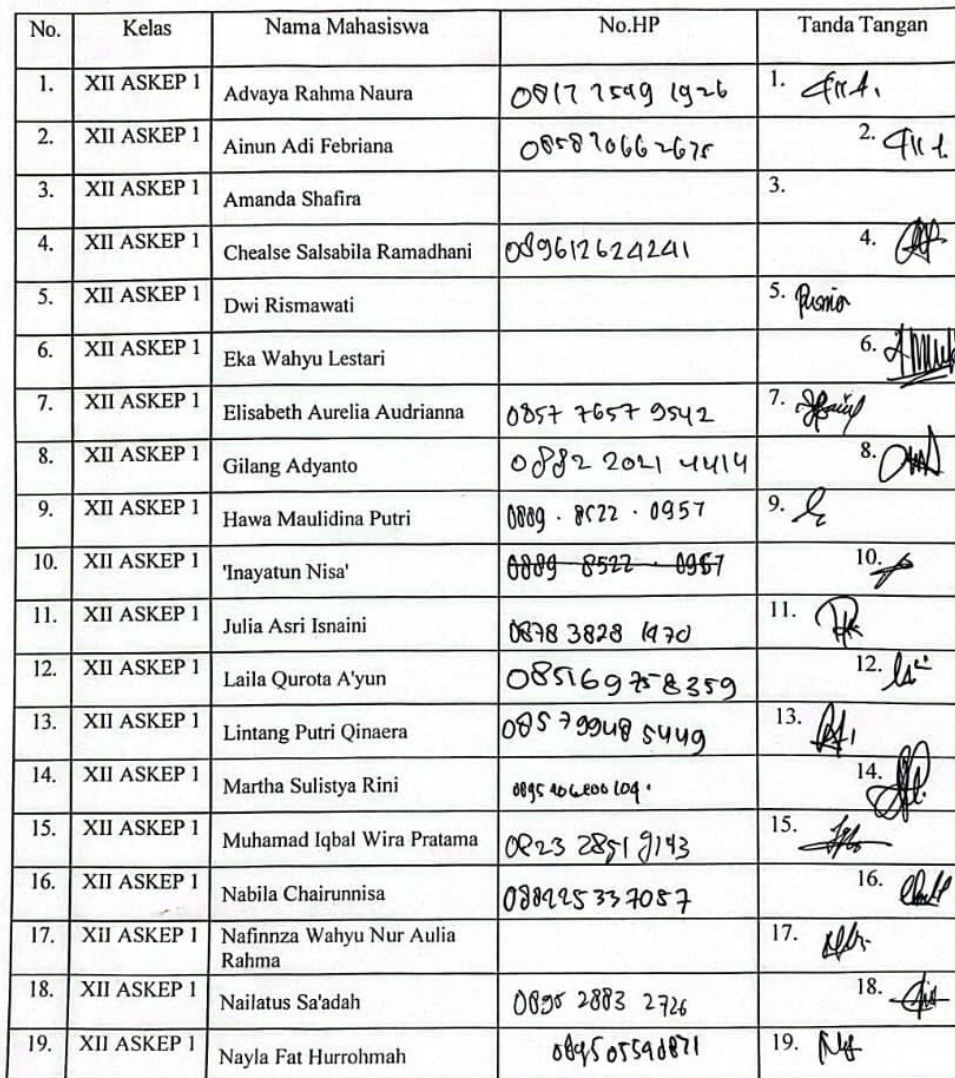 No. Kelas Nama Mahasiswa No.HP Tanda Tangan
1. XII ASKEP 1 Advaya Rahma Naura 1.
2. XII ASKEP 1 Ainun Adi Febriana 2.
3. XII ASKEP 1 Amanda Shafira 3.
4. XII ASKEP 1 Chealse Salsabila Ramadhani 089612624241 4.
5. XII ASKEP 1 Dwi Rismawati 5.
6. XII ASKEP 1 Eka Wahyu Lestari 6.
7. XII ASKEP 1 Elisabeth Aurelia Audrianna 0857 7657 9542 7.
8. XII ASKEP 1 Gilang Adyanto 0882 2021 4414 8.
9. XII ASKEP 1 Hawa Maulidina Putri 0889 . 8522 . 0957 9.
10. XII ASKEP 1 'Inayatun Nisa' 0889 8522 . 0957 10.
11. XII ASKEP 1 Julia Asri Isnaini 0878 3828 1470 11.
12. XII ASKEP 1 Laila Qurota A'yun 085169758359 12.
13. XII ASKEP 1 Lintang Putri Qinaera 085799485449 13.
14. XII ASKEP 1 Martha Sulistya Rini 14.
15. XII ASKEP 1 Muhamad Iqbal Wira Pratama 0823 2851 9143 15.
16. XII ASKEP 1 Nabila Chairunnisa 16.
17. XII ASKEP 1 Nafinnza Wahyu Nur Aulia 17.
Rahma
18. XII ASKEP 1 Nailatus Sa'adah 0895 2883 2726 18.
19. XII ASKEP 1 Nayla Fat Hurrohmah 19.